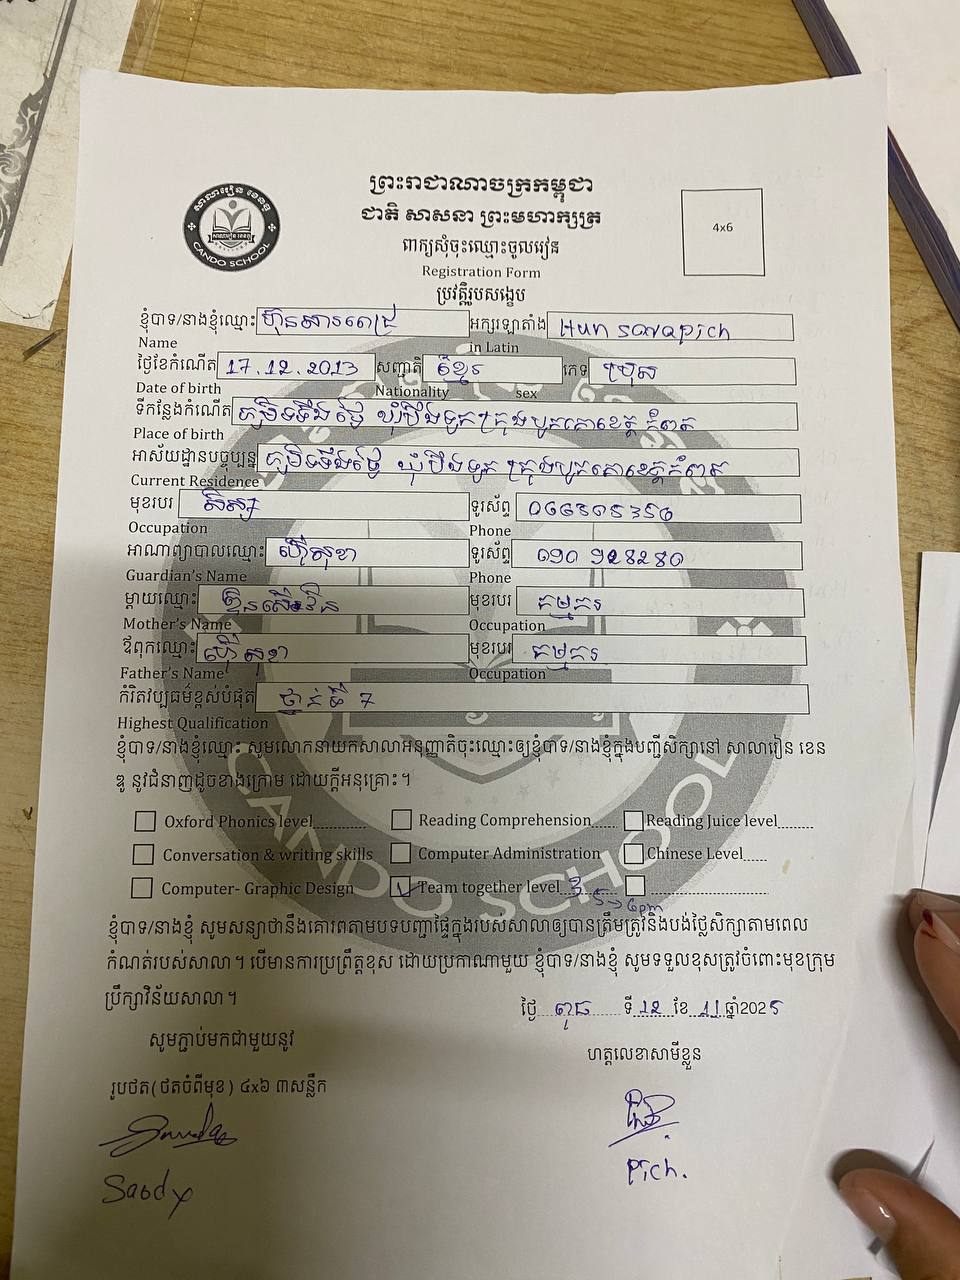 សាលារៀន ខេនឌូ
CANDO SCHOOL
ព្រះរាជាណាចក្រកម្ពុជា
ជាតិ សាសនា ព្រះមហាក្សត្រ
ពាក្យសុំចុះឈ្មោះចូលរៀន
Registration Form
ប្រវត្តិរូបសង្ខេប
4x6
ខ្ញុំបាទ/នាងខ្ញុំឈ្មោះ ហ៊ុនសារពេជ្រ អក្សរឡាតាំង Hun sarapich
Name in Latin
ថ្ងៃខែកំណើត 17.12.2013 សញ្ជាតិ ខ្មែរ ភេទ ប្រុស
Date of birth Nationality sex
ទីកន្លែងកំណើត ឃុំបឹងទូក ក្រុងបូកគោខេត្ត កំពត
Place of birth
អាស័យដ្ឋានបច្ចុប្បន្ន ឃុំបឹងទូក ក្រុងបូកគោខេត្តកំពត
Current Residence
មុខរបរ សិស្ស ទូរស័ព្ទ
Occupation Phone
អាណាព្យាបាលឈ្មោះ ហ៊ឺសុខា ទូរស័ព្ទ 090 928280
Guardian's Name Phone
ម្តាយឈ្មោះ មុខរបរ កម្មករ
Mother's Name Occupation
ឪពុកឈ្មោះ ហ៊ឺ សុខា មុខរបរ កម្មករ
Father's Name Occupation
កំរិតវប្បធម៌ខ្ពស់បំផុត ថ្នាក់ទី 7
Highest Qualification
ខ្ញុំបាទ/នាងខ្ញុំឈ្មោះ សូមលោកនាយកសាលាអនុញ្ញាតិចុះឈ្មោះឲ្យខ្ញុំបាទ/នាងខ្ញុំក្នុងបញ្ជីសិក្សានៅ សាលារៀន ខេន
ឌូ នូវជំនាញដូចខាងក្រោម ដោយក្តីអនុគ្រោះ។
Oxford Phonics level......... Reading Comprehension...... Reading Juice level.........
Conversation & writing skills Computer Administration Chinese Level......
Computer- Graphic Design Team together level 3
5->6pm
ខ្ញុំបាទ/នាងខ្ញុំ សូមសន្យាថានឹងគោរពតាមបទបញ្ជាផ្ទៃក្នុងរបស់សាលាឲ្យបានត្រឹមត្រូវនិងបង់ថ្លៃសិក្សាតាមពេល
កំណត់របស់សាលា។ បើមានការប្រព្រឹត្តខុស ដោយប្រកាណាមួយ ខ្ញុំបាទ/នាងខ្ញុំ សូមទទួលខុសត្រូវចំពោះមុខក្រុម
ប្រឹក្សាវិន័យសាលា។
ថ្ងៃ ពុធ ទី 12 ខែ 11 ឆ្នាំ2025
សូមភ្ជាប់មកជាមួយនូវ
ហត្ថលេខាសាមីខ្លួន
រូបថត(ថតចំពីមុខ) ៤x៦ ៣សន្លឹក
Pich.